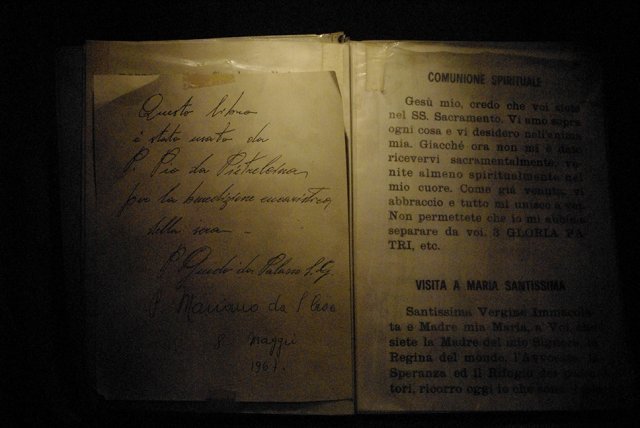 Questo libro
è stato usato da
P. Pio da Pietrelcina,
per la benedizione eucaristica
della sera -
P. Guido da
P. Mariano da S. Croce
8 Maggio
1967.
COMUNIONE SPIRITUALE
Gesù mio, credo che voi siete
nel SS. Sacramento. Vi amo sopra
ogni cosa e vi desidero nell'anima
mia. Giacché ora non mi è dato
ricevervi sacramentalmente, ve-
nite almeno spiritualmente nel
mio cuore. Come già venuto, vi
abbraccio e tutto mi unisco a voi.
Non permettete che io mi abbia a
separare da voi. 3 GLORIA PA-
TRI, etc.
VISITA A MARIA SANTISSIMA
Santissima Vergine Immacola-
ta e Madre mia Maria, a Voi, che
siete la Madre del mio Signore, la
Regina del mondo, l'Avvocata, la
Speranza ed il Rifugio dei pecca-
tori, ricorro oggi io che sono